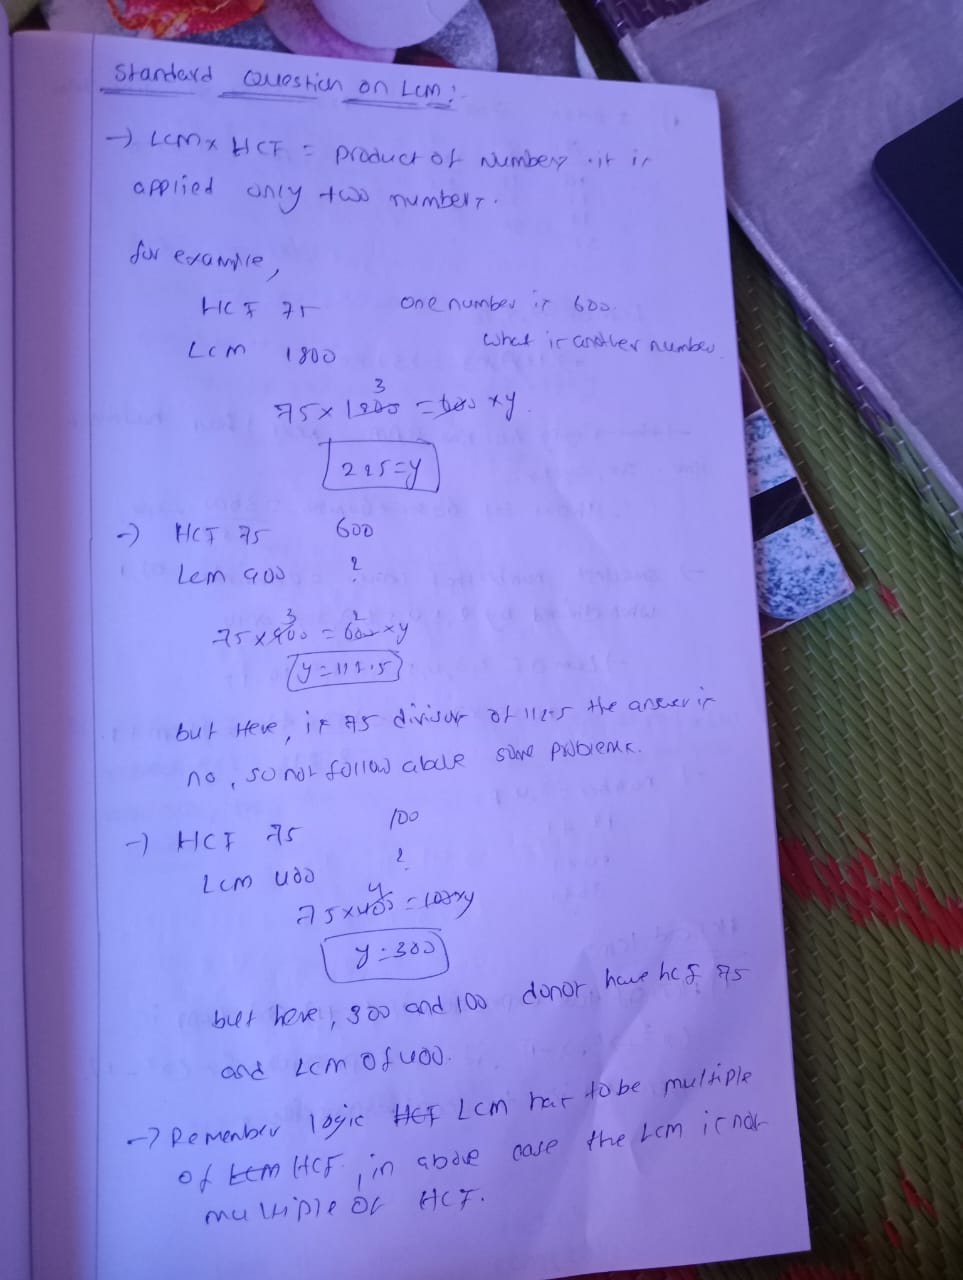 Standard Question on Lcm:
→ LCM x HCF = product of numbers. it is
applied only two numbers.
for example,
HCF 75 one number is 600.
LCM 1800 what is another number
3
75 x 1800 = 600 x y.
225 = y
→ HCF 75 600
Lcm 900 ?
3 2
75 x 900 = 600 x y
y = 112.5
but Here, is 75 divisor of 112.5 the answer is
no, so not follow above some problems.
→ HCF 75 100
LCM 400 ?
4
75 x 400 = 100xy
y = 300
but here, 300 and 100 donot, have hcf 75
and LCM of 400.
→ Remember logic HCF LCM has to be multiple
of LCM HCF, in above case the Lcm is not
multiple of HCF.